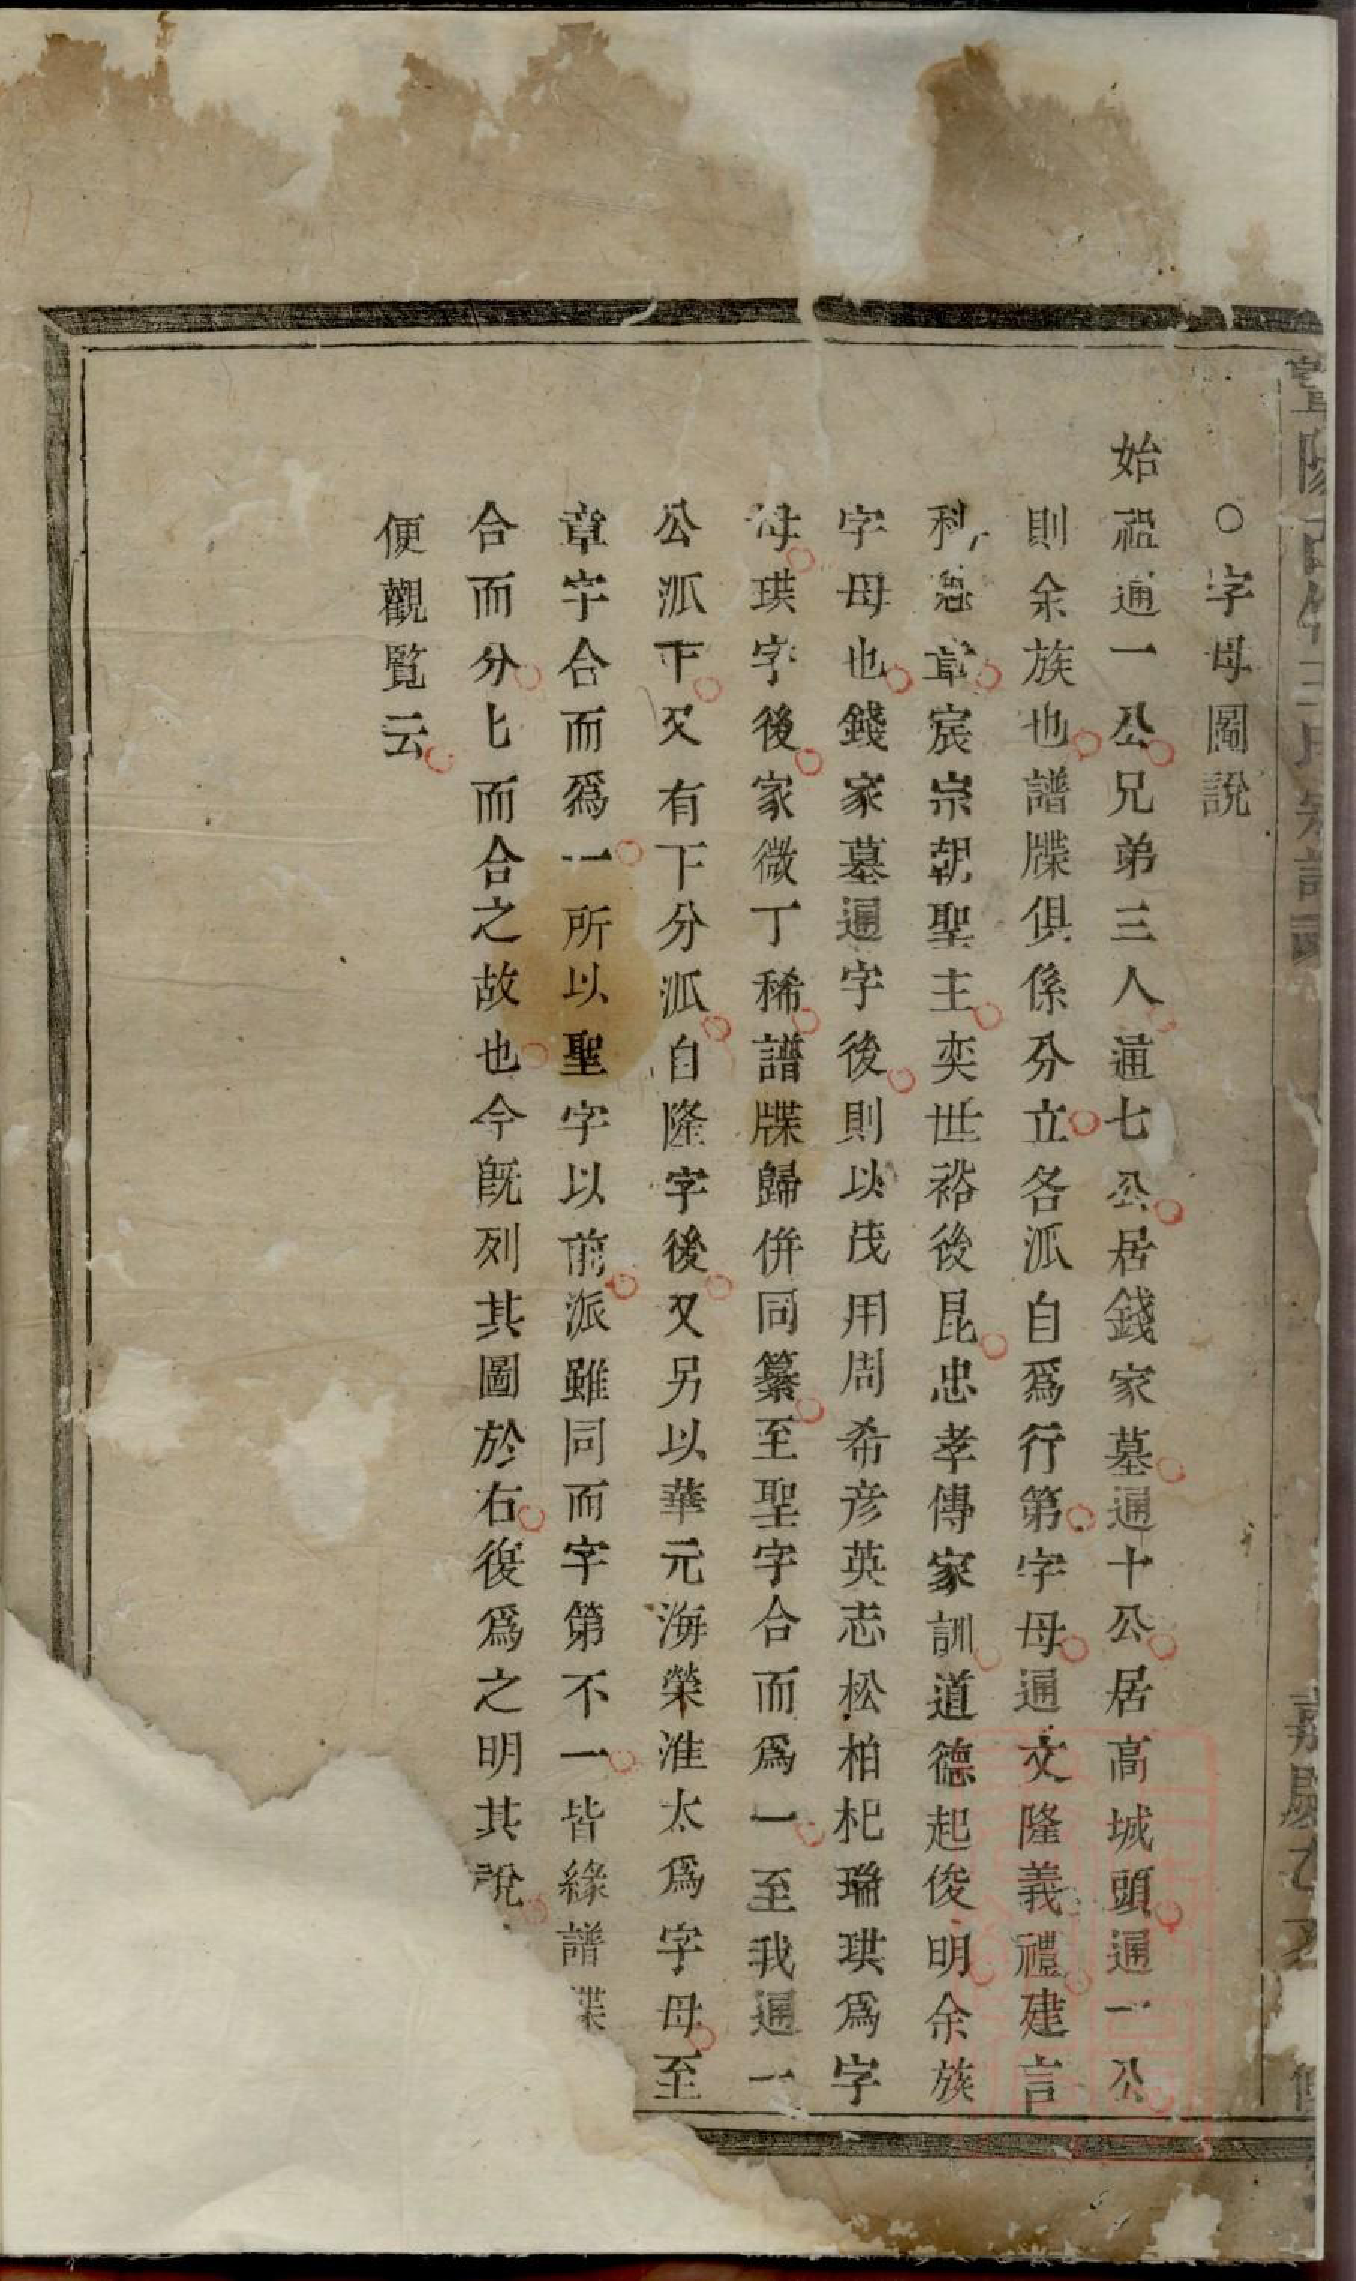 ○字母圖說
始祖通一公兄弟三人通七公居錢家墓通十公居高城頭通一公
則余族也譜牒俱係分立各派自爲行第字母通文隆義禮建言
科 章宸宗朝聖主奕世裕後昆忠孝傳家訓道德起俊明余族
字母也錢家墓通字後則以茂用周希彦英志松柏杞瑞珙爲字
母珙字後家微丁稀譜牒歸併同纂至聖字合而爲一至我通一
公派下又有下分派自隆字後又另以華元海榮淮太爲字母至
章字合而爲一所以聖字以前派雖同而字第不一皆緣譜牒
合而分匕而合之故也今旣列其圖於右復爲之明其說
便觀覧云
陽 宗譜
嘉慶乙亥 修